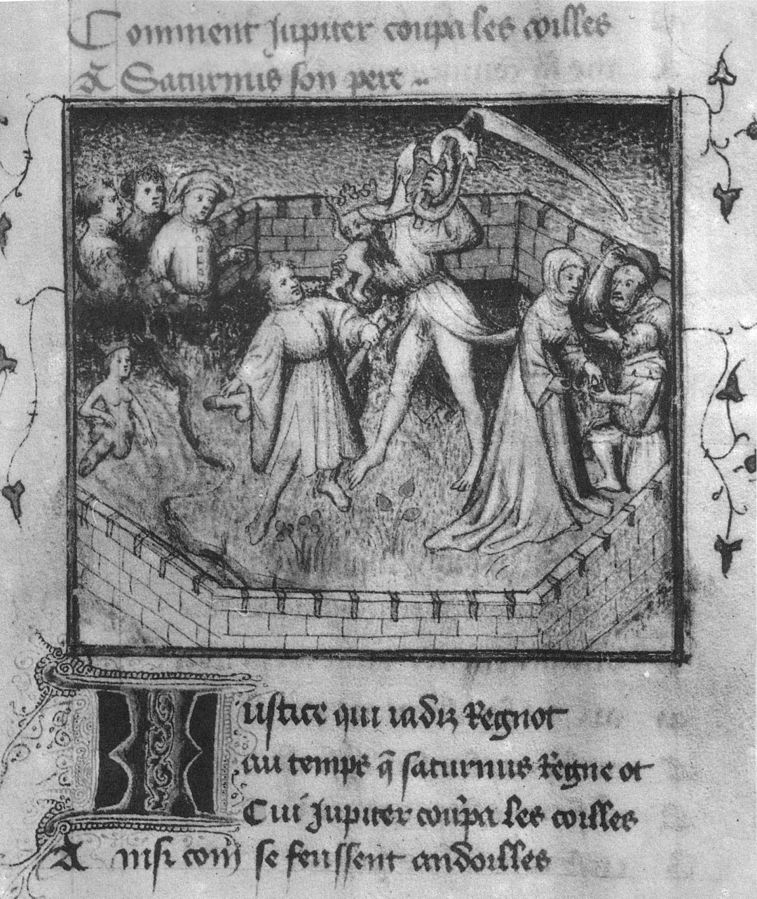 Comment Jupiter coupa les coilles
A Saturnus son pere
Justice qui iadiz Regnot
au temps q̃ saturnus Regne ot
Cui Jupiter coupa les coilles
Ainsi com se feussent andoilles